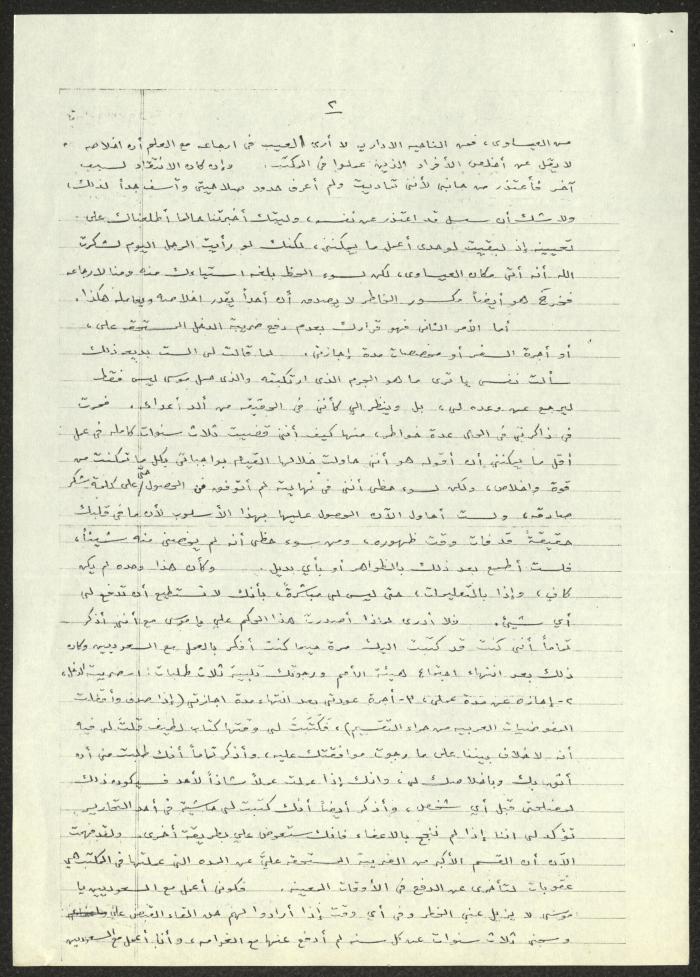 ٢
من العيساوى، فمن الناحيه الاداريه لا أرى العيب فى ارجاعه مع العلم أن اخلاصه
لا يقل عن أخلص الأفراد الذين عملوا فى المكتب. وإن كان الانتقاد لسبب
آخر فأعتذر من جانبى لأننى تماديت ولم أعرف حدود صلاحيتى وآسف جداً لذلك،
ولا شك أن سبل قد اعتذر عن نفسه، وليتك أخبرتنا حالما أطلعناك على
تعيينه إذ لبقيت لوحدى أعمل ما يمكننى، لكنك لو رأيت الرجل اليوم لشكرت
الله أنه أتى مكان العيساوى، لكن لسوء الحظ بلغه استياءك منه ومنا لارجاعه
فخرج هو أيضاً مكسور الخاطر لا يصدق أن أحداً يقدر اخلاصه ويعامله هكذا.
أما الأمر الثانى فهو قرارك بعدم دفع ضريبة الدخل المستحقه على،
أو أجرة السفر أو مخصصات مدة إجازتى. لما قالت لى الست بديعه ذلك
سألت نفسى يا ترى ما هو الجرم الذى ارتكبته والذى جعل موسى ليس فقط
ليرجع عن وعده لى، بل وينظر الى كأننى فى الحقيقه من ألد أعداءه. فمرت
فى ذاكرتى فى الحال عدة خواطر، منها كيف أننى قضيت ثلاث سنوات كامله فى عمل
أقل ما يمكننى أن أقوله هو أننى حاولت خلالها القيام بواجباتى بكل ما تمكنت من
قوة واخلاص، ولكن لسوء حظى أننى فى نهايته لم أتوفق فى الحصول حتى على كلمة شكر
صادقه، ولست أحاول الآن الحصول عليها بهذا الأسلوب لأن ما فى قلبك
حقيقةً قد فات وقت ظهوره، ومن سوء حظى أنه لم يخصنى منه شيئاً،
فلست أطمع بعد ذلك بالظواهر أو بأي بديل. وكأن هذا وحده لم يكن
كافٍ، وإذا بالتعليمات، حتى ليس لى مباشرةً، بأنك لا تستطيع أن تدفع لى
أي شيئ. فلا أدرى لماذا أصدرت هذا الحكم علي يا موسى مع أننى أذكر
تماماً أننى كنت قد كتبت اليك مرة حينما كنت أفكر بالعمل مع السعوديين وكان
ذلك بعد انتهاء اجتماع هيئة الأمم ورجوتك تلبية ثلاث طلبات: ١- ضريبة الدخل،
٢- إجازه عن مدة عملى، ٣- أجرة عودتى بعد انتهاء مدة اجازتى (إذا صدف وأقفلت
المفوضيات العربيه من جراء التقسيم)، فكتبتَ لى وقتها كتاب لطيف قلتَ لى فيه
أنه لا خلاف بيننا على ما رجوت موافقتك عليه، وأذكر تماماً أنك طلبت منى أن
أثق بك وباخلاصك لى، وانك إذا عملت عملاً شاذاً لأحد فسيكون ذلك
لمصلحتى قبل أي شخص، وأذكر أيضاً أنك كتبت لى حاشية فى أحد التحارير
تؤكد لى اننا إذا لم ننجح بالاعفاء فانك ستعوض علي بطريقة أخرى. ولقد فهمت
الآن أن القسم الأكبر من الضريبة المستحقه عليَّ عن المده التى عملتها فى المكتب هي
عقوبات لتأخرى عن الدفع فى الأوقات المعينه. فكونى أعمل مع السعوديين يا
موسى لا يزيل عنى الخطر وفى أي وقت إذا أرادوا لهم حق القاء القبض علي
وسجنى ثلاث سنوات عن كل سنه لم أدفع عنها مع الغرامه، وأنا أعمل مع السعوديين